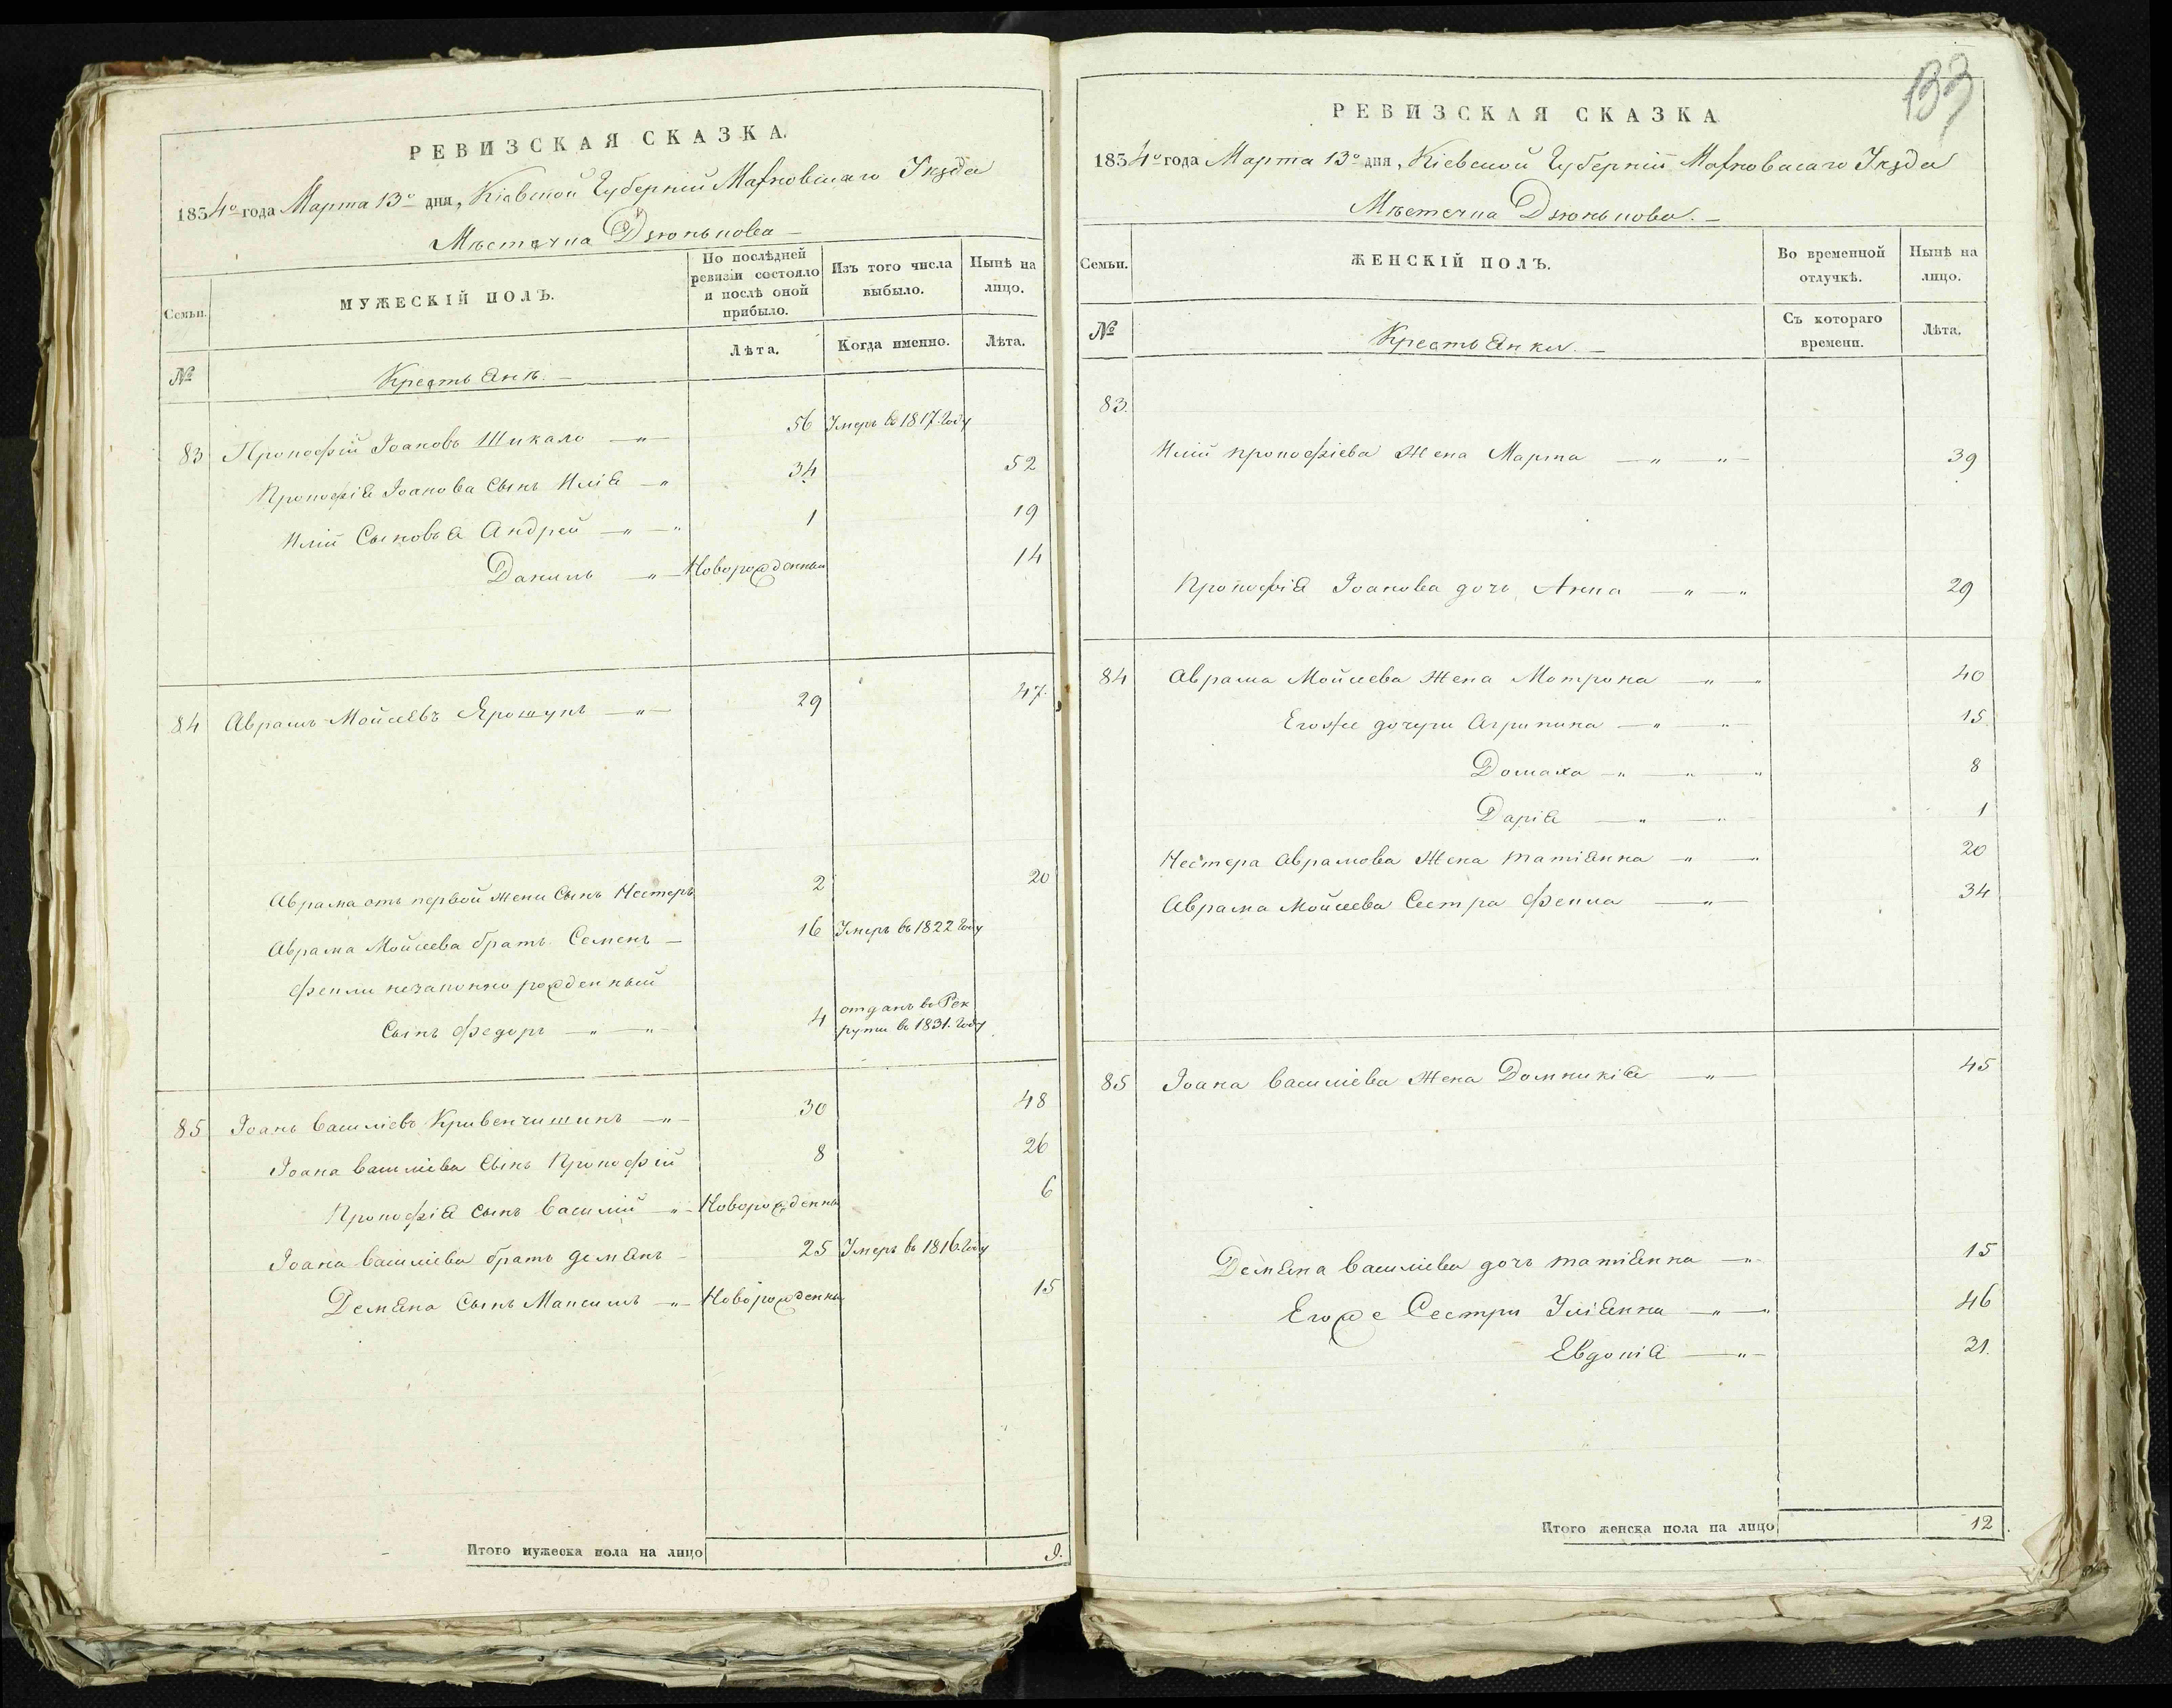 РЕВИЗСКАЯ СКАЗКА.
1834го года Марта 13го дня, Кіевской Губерніи Махновскаго Уѣзда
Мѣстечка Дзюнькова —
Семьи.
МУЖЕСКІЙ ПОЛЪ.
По послѣдней ревизіи состояло и послѣ оной прибыло.
Изъ того числа выбыло.
Нынѣ на лицо.
№
Крестьянъ. —
Лѣта.
Когда именно.
Лѣта.
83 Прокофій Іоановъ Шикало — „ — 56 Умеръ въ 1817. Году
Прокофія Іоанова Сынъ Илія — „ 34 52
Иліи Сыновья Андрей — „ — „ 1 19
Данилъ — „ — Новорожденный 14
84 Аврамъ Мойсеевъ Ярошукъ — „ — 29 47.
Аврама отъ первой жены Сынъ Нестеръ 2 20
Аврама Мойсеева братъ Семенъ — 16 Умеръ въ 1822 Году
Феклы незаконно рожденный
Сынъ Федоръ — „ — „ 4 отданъ въ Рек
руты въ 1831. Году
85 Іоанъ Василіевъ Кривенчишинъ — „ — 30 48
Іоана Василіева Сынъ Прокофій 8 26
Прокофія Сынъ Василій „ — Новорожденны 6
Іоана Василіева братъ Демянъ — 25 Умеръ въ 1816. Году
Демяна Сынъ Максимъ — „ — Новорожденны 15
Итого мужеска пола на лицо 9.
133
РЕВИЗСКАЯ СКАЗКА
1834го года Марта 13го дня, Кіевской Губерніи Махновскаго Уѣзда
Мѣстечка Дзюнькова. —
Семьи.
ЖЕНСКІЙ ПОЛЪ.
Во временной отлучкѣ.
Нынѣ на лицо.
№
Крестьянки. —
Съ котораго времени.
Лѣта.
83.
Иліи Прокофіева Жена Марта — „ — „ — 39
Прокофія Іоанова дочь Анна — „ — „ 29
84 Аврама Мойсеева Жена Мотрона — „ — „ 40
Егоже дочери Агрипина — „ — „ — 15
Домаха — „ — „ — „ 8
Дарія — „ — „ — 1
Нестера Аврамова Жена Татіянна — „ — „ 20
Аврама Мойсеева Сестра Фекла — „ — 34
85 Іоана Василіева Жена Домникія — „ — 45
Демяна Василіева дочь Татіянна — „ — 15
Егоже Сестры Уліянна — „ — „ 46
Евдокія — „ — 31.
Итого женска пола на лицо 12